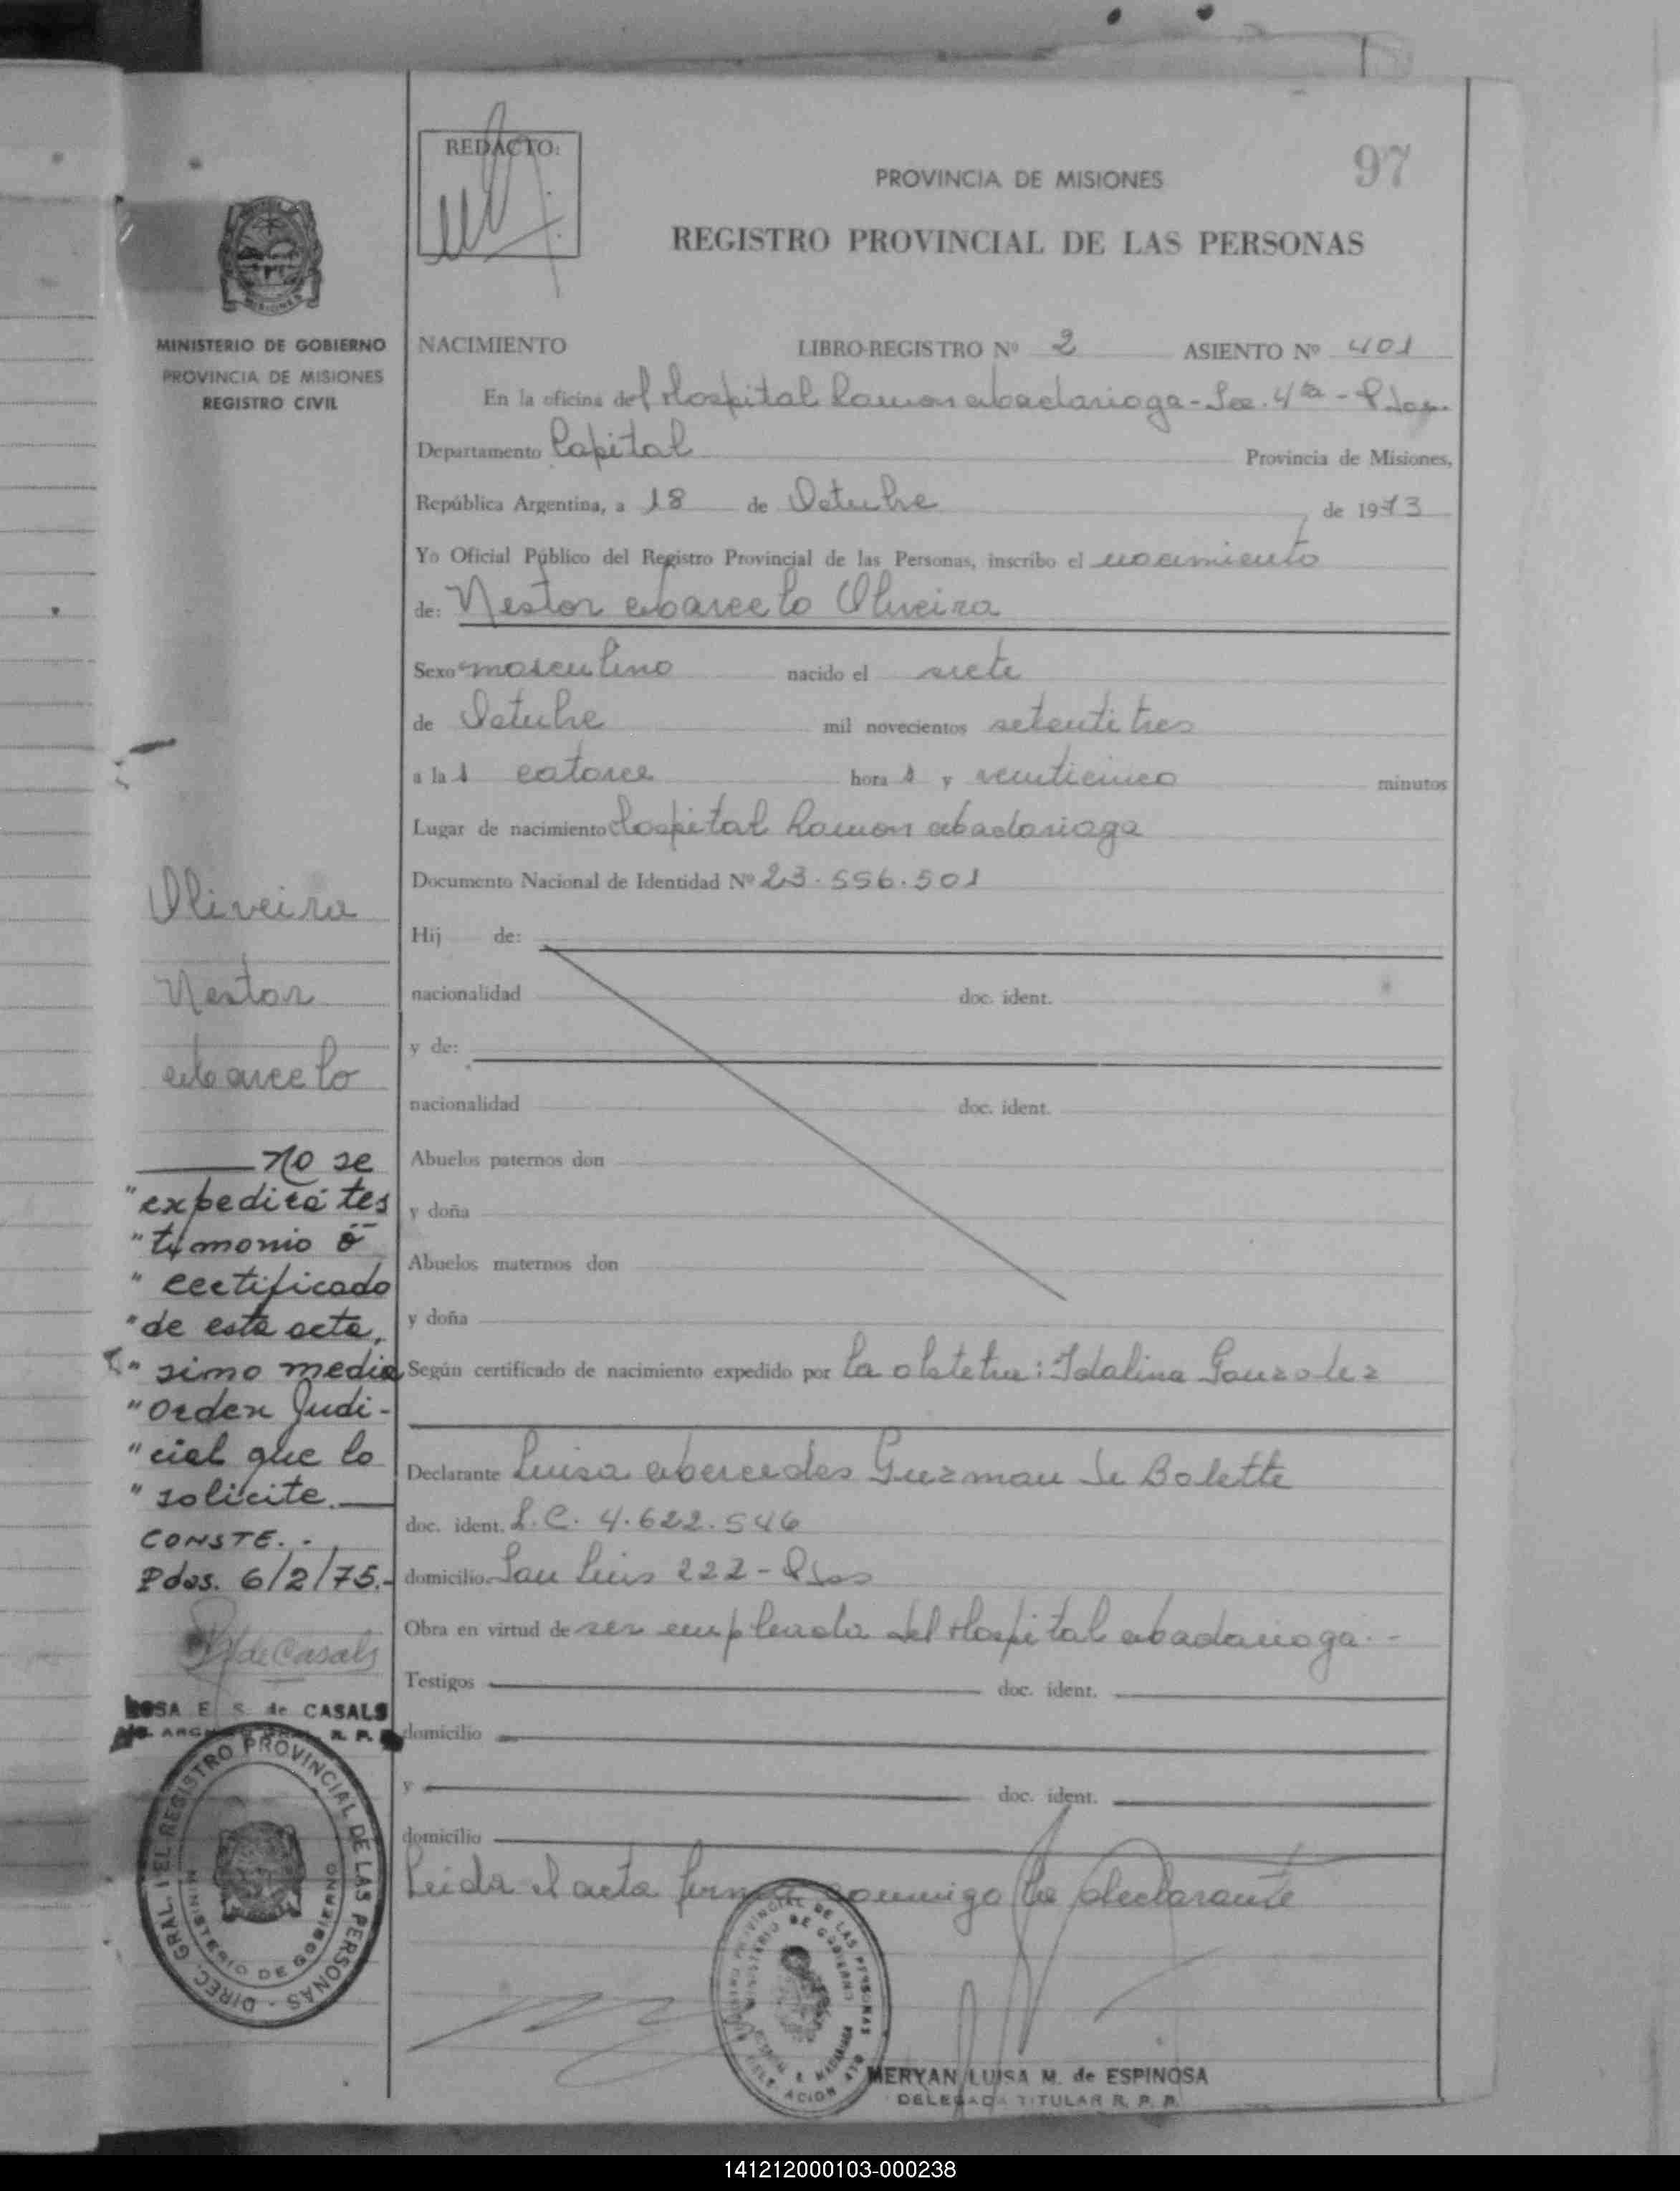 REDACTO:
97
PROVINCIA DE MISIONES
REGISTRO PROVINCIAL DE LAS PERSONAS
MINISTERIO DE GOBIERNO
PROVINCIA DE MISIONES
REGISTRO CIVIL
NACIMIENTO LIBRO-REGISTRO Nº 2 ASIENTO Nº 401
En la oficina del Hospital Ramon Madariaga - Sec. 4ta - Pdas.
Departamento Capital Provincia de Misiones,
República Argentina, a 18 de Octubre de 1973
Yo Oficial Público del Registro Provincial de las Personas, inscribo el nacimiento
de: Nestor Marcelo Oliveira
Sexo masculino nacido el siete
de Octubre mil novecientos setentitres
a las catorce horas y veinticinco minutos
Lugar de nacimiento Hospital Ramon Madariaga
Documento Nacional de Identidad Nº 23.556.501
Hij de:
nacionalidad doc. ident.
y de:
nacionalidad doc. ident.
Abuelos paternos don
y doña
Abuelos maternos don
y doña
Según certificado de nacimiento expedido por la obstetra: Idalina Gonzalez
Declarante Luisa Mercedes Guzman de Bolette
doc. ident. L.C. 4.622.546
domicilio San Luis 222 - Pdas
Obra en virtud de ser empleada del Hospital Madariaga.-
Testigos doc. ident.
domicilio
y doc. ident.
domicilio
Leida el acta firma conmigo la declarante
MERYAN LUISA M. de ESPINOSA
DELEGADA TITULAR R. P. P.
Oliveira
Nestor
Marcelo
No se
"expedirá tes
"timonio ó
"certificado
"de esta acta,
"sino media
"Orden Judi-
"cial que lo
"solicite.
CONSTE.-
Pdas. 6/2/75.-
ROSA E. S. de CASALS
DIREC. GRAL. DEL REGISTRO PROVINCIAL DE LAS PERSONAS
MINISTERIO DE GOBIERNO
141212000103-000238